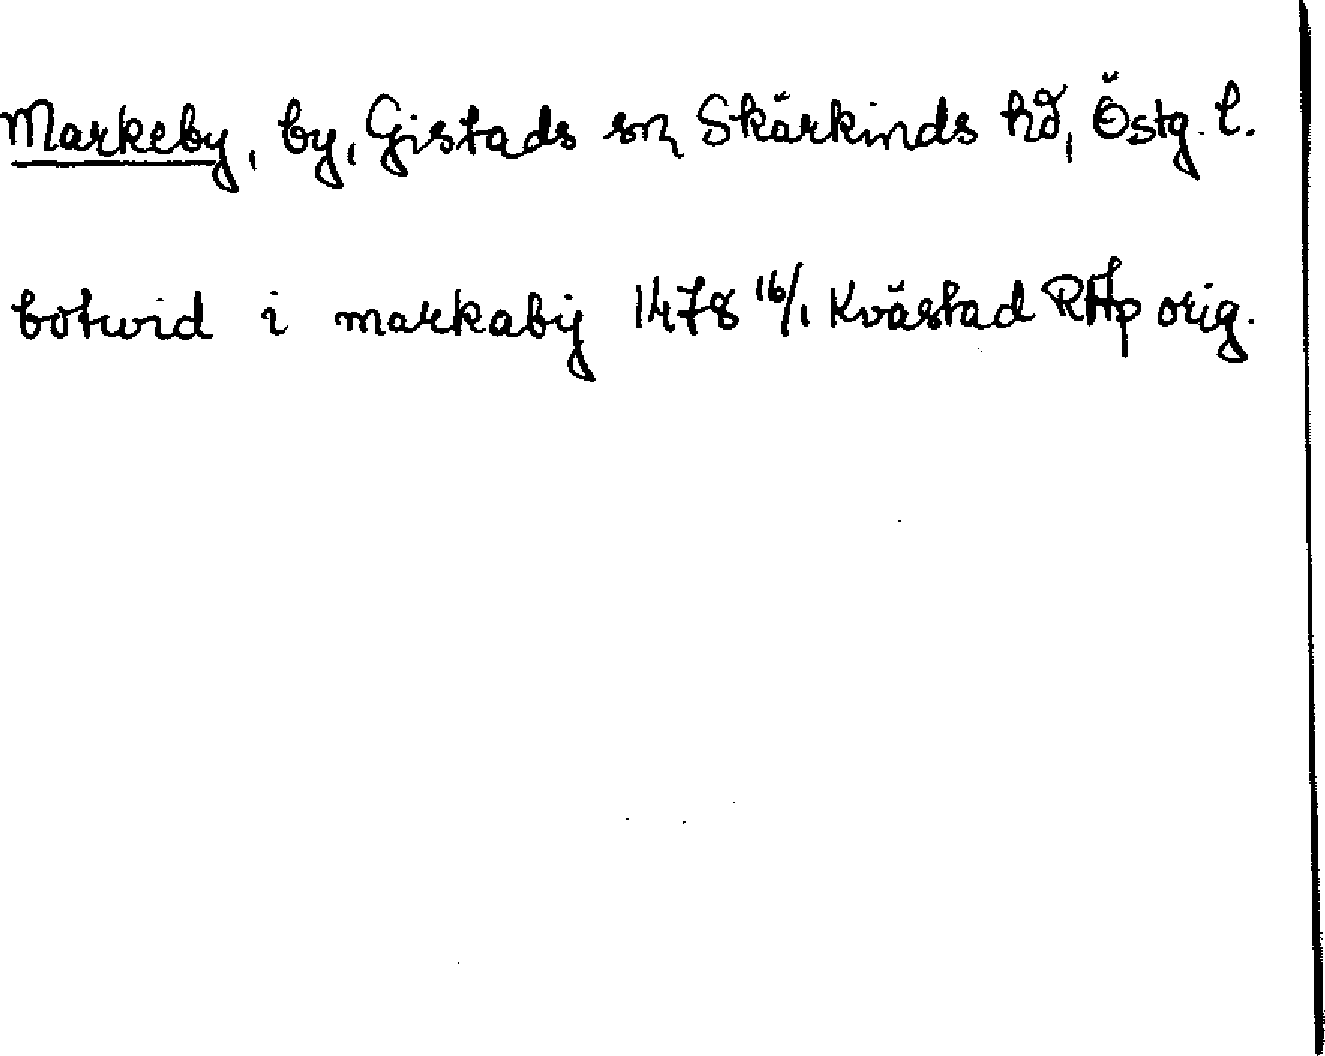 Markeby, by, Gistads sn, Skärkinds hd, Östg. l.
botwid i markabÿ 1478 16/1 Kvästad RAp orig.